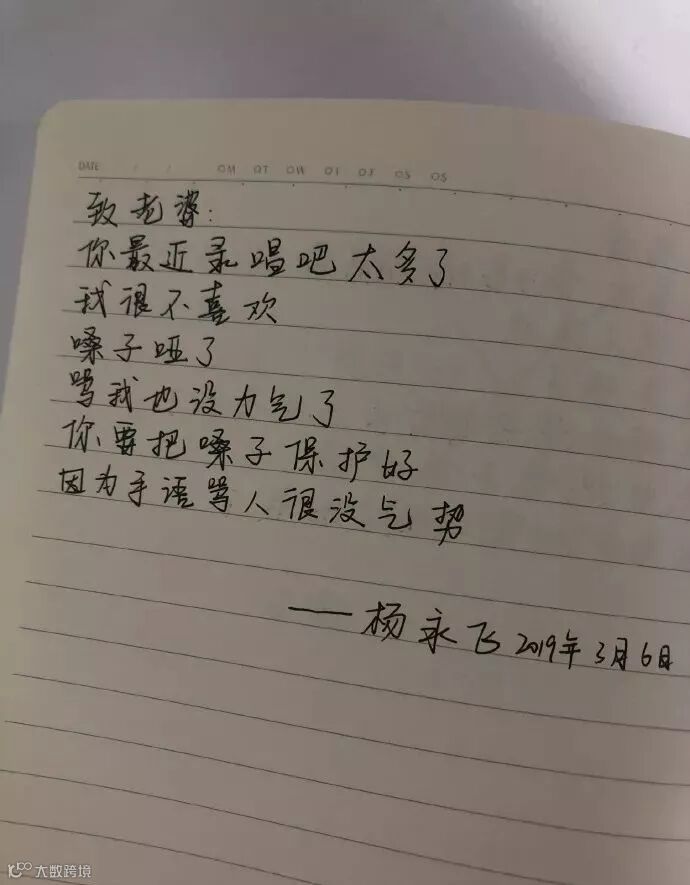 DATE / / OM OT OW OT OF OS OS
致老婆:
你最近录唱吧太多了
我很不喜欢
嗓子哑了
骂我也没力气了
你要把嗓子保护好
因为手语骂人很没气势
——杨永飞 2019年3月6日
大数跨境